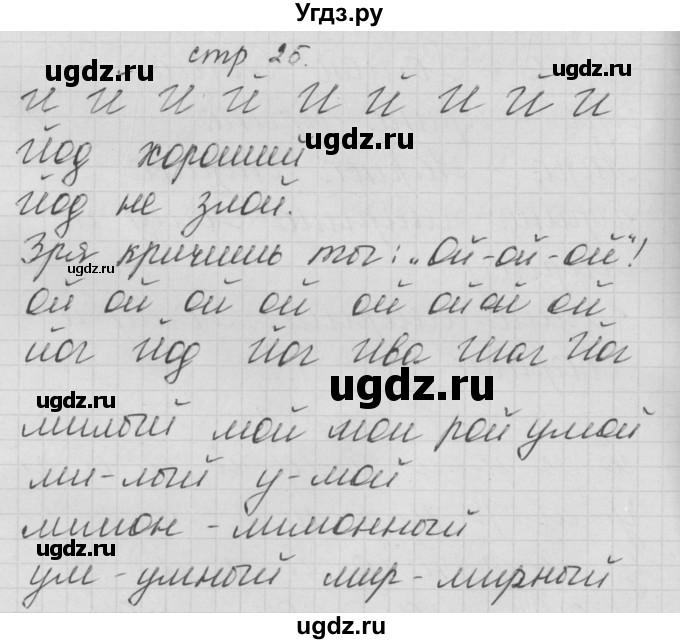 Угдз.ру
стр 25.
ugdz.ru
И Й И Й И Й И Й И
ugdz.ru
Йод хороший
Йод не злой.
Зря кричишь ты: „Ой-ой-ой“!
ugdz.ru
ой ой ой ой ой ой ой ой
йог Йод Йог Ива Шаг Йог
ugdz.ru
ugdz.ru
милый мой мои рой умой
ми-лый у-мой
лимон - лимонный
ugdz.ru
ум - умный мир - мирный
ugdz.ru
Угдз.ру